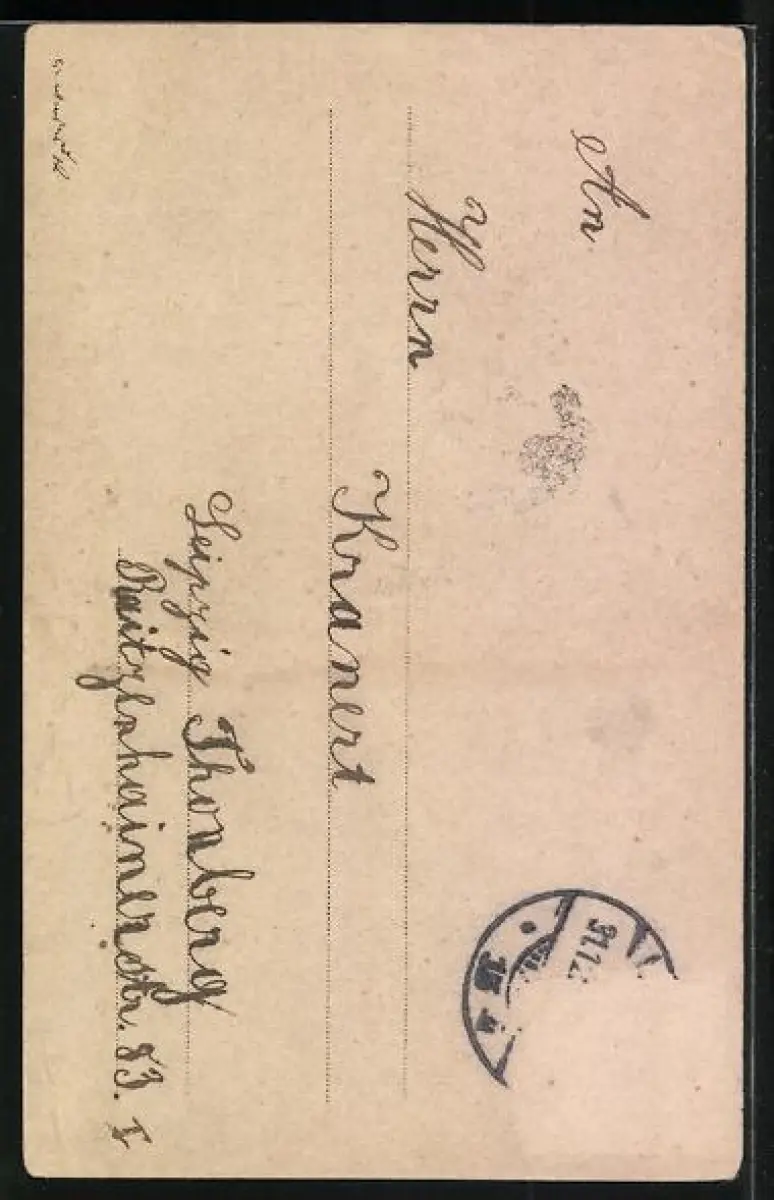 An
Herrn
Kranert
Leipzig Thonberg
Reitzenhainerstr. 83. I
31.12